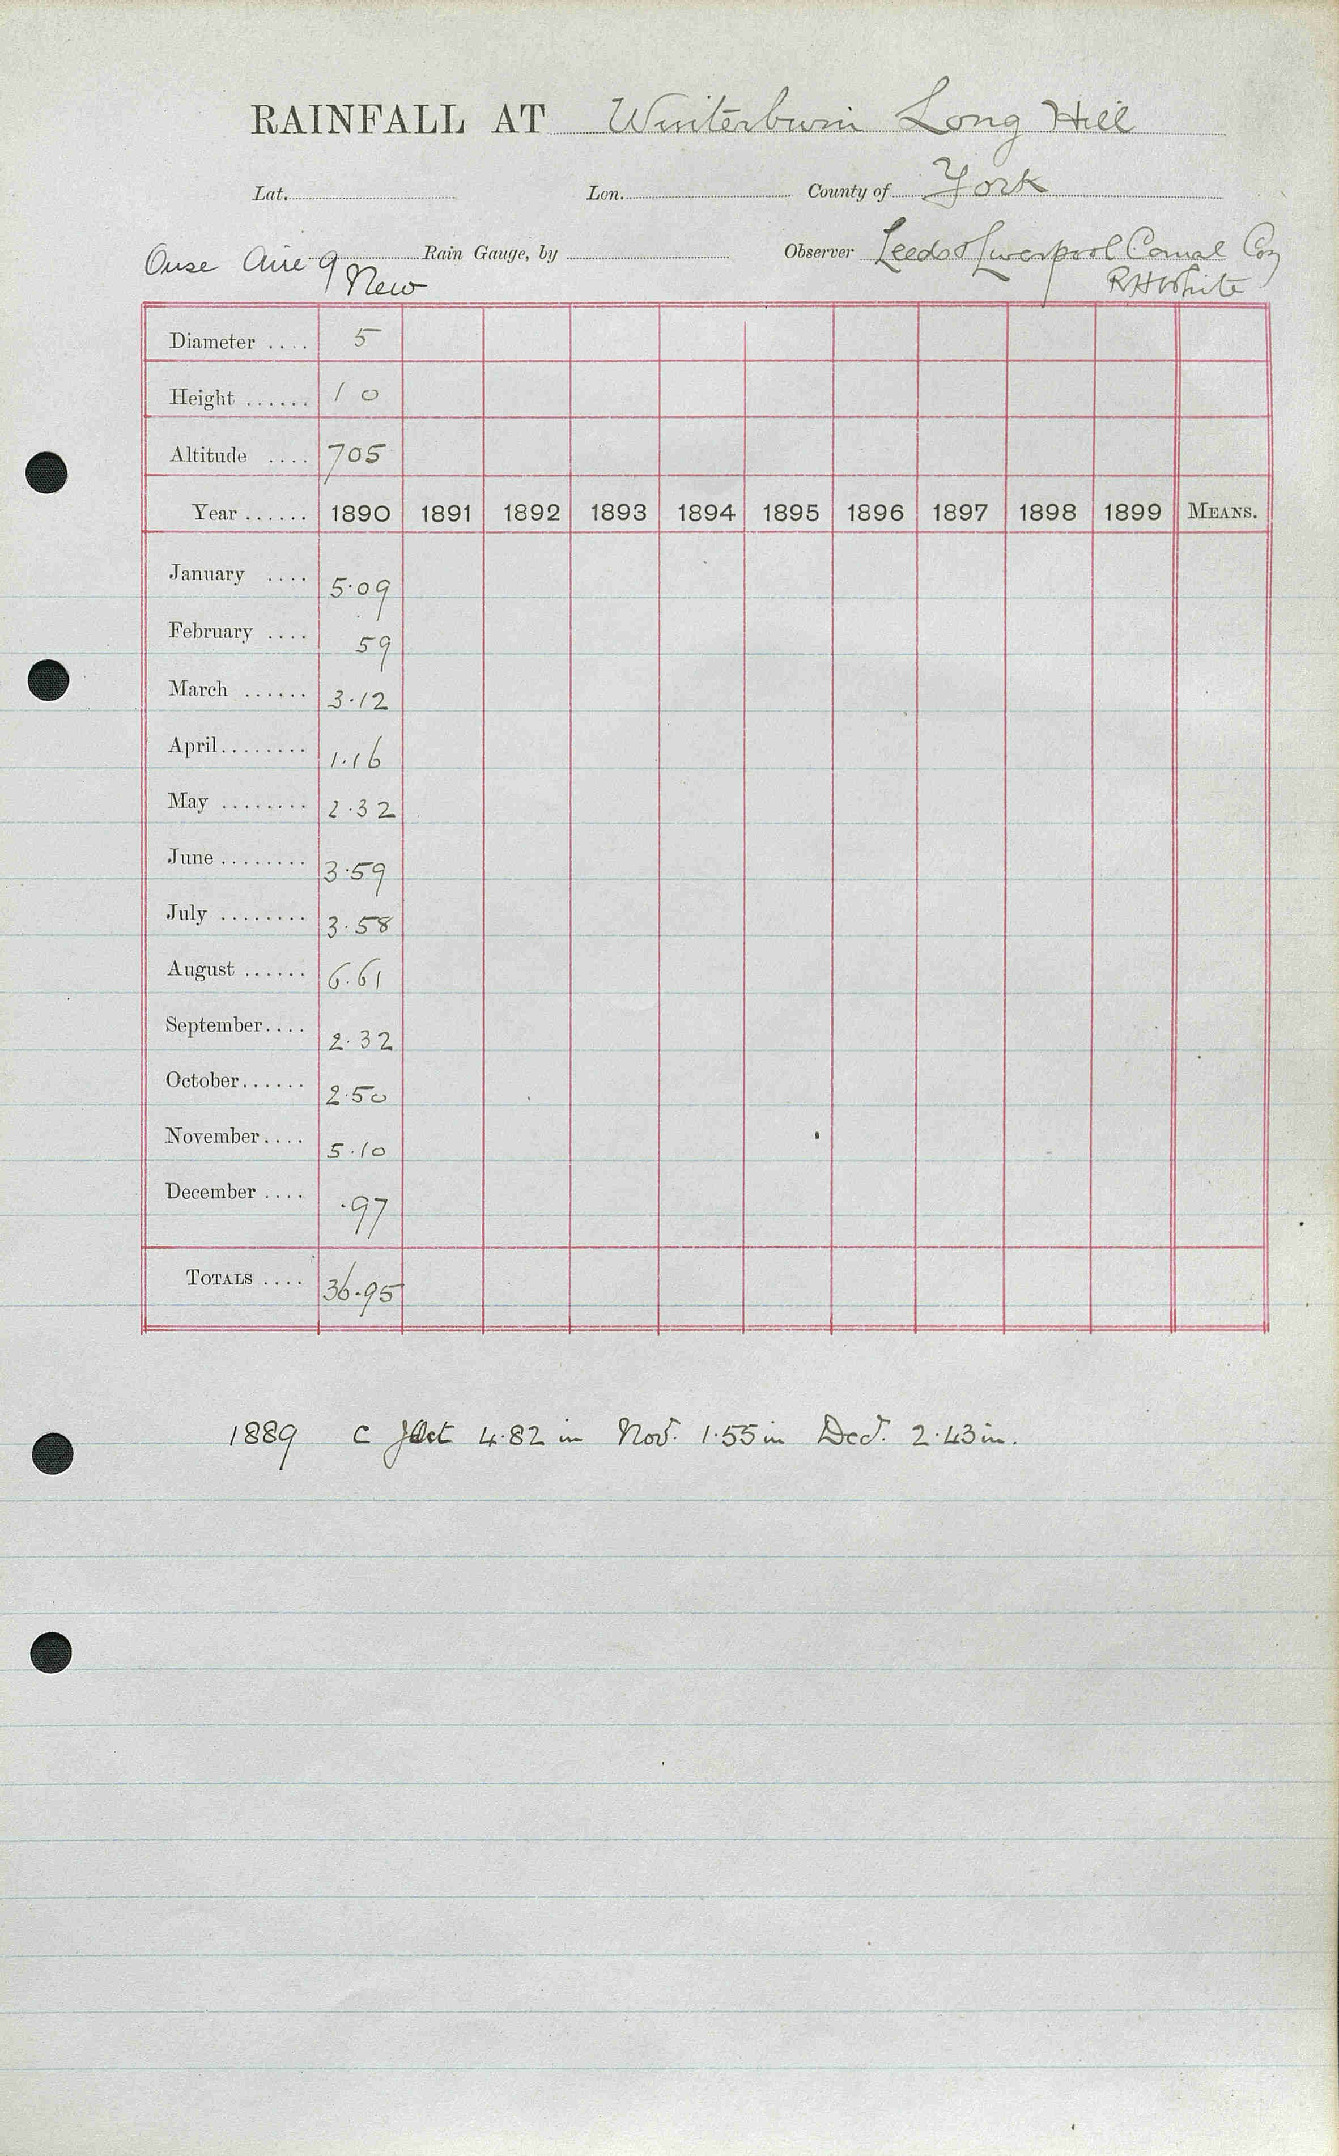 RAINFALL AT Winterburn Long Hill
Lat. Lon. County of York
Ouse Aire 9 Rain Gauge, by Observer Leeds & Liverpool Canal Coy
New R H White
Diameter .... 5
Height ...... 1 0
Altitude .... 705
Year ...... 1890 1891 1892 1893 1894 1895 1896 1897 1898 1899 MEANS.
January .... 5.09
February .... 59
March ...... 3.12
April ........ 1.16
May ........ 2.32
June ........ 3.59
July ........ 3.58
August ...... 6.61
September .... 2.32
October ...... 2.50
November .... 5.10
December .... .97
TOTALS .... 36.95
1889 C Oct 4.82 in Nov. 1.55 in Dec. 2.43 in.